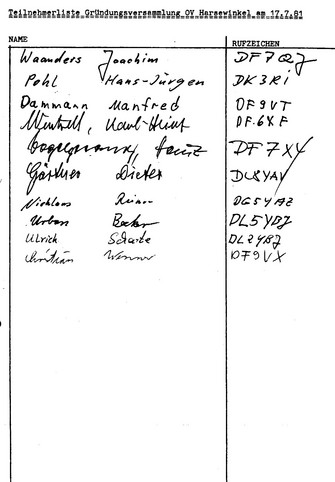 Teilnehmerliste Gründungsversammlung OV Harsewinkel am 17.7.81
NAME RUFZEICHEN
Waanders Joachim DF7QJ
Pohl Hans-Jürgen DK3RI
Dammann Manfred DF9VT
Karl-Heinz DF6XF
DF7XY
Gärtner Dieter DL8YAV
DG5YAZ
Urban DL5YBJ
Ulrich DL2YBJ
Christian Werner DF9VX